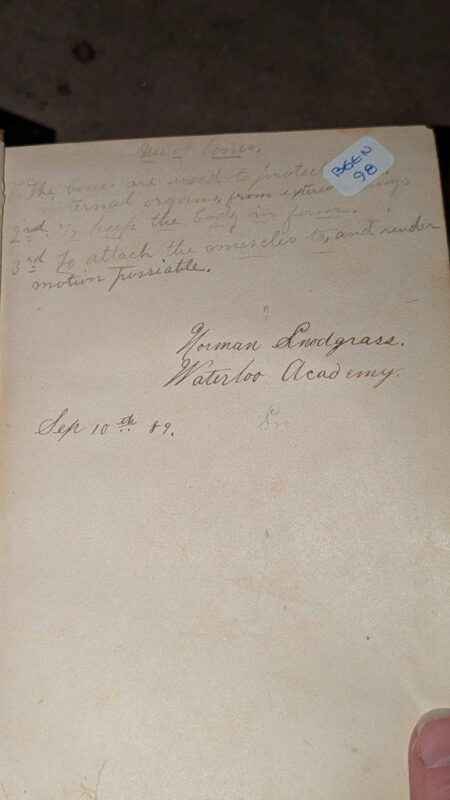 Use of bones.
The bones are used to protect
ternal organs, from extreme
2nd To keep the body in form.
3rd To attach the muscles to, and render
motion possiable.
BEEN
98
Norman Snodgrass.
Waterloo Academy.
Sep 10th 89.
Sn